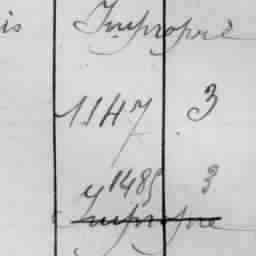 is Impropre
1147 3
y 1485 3
Impropre